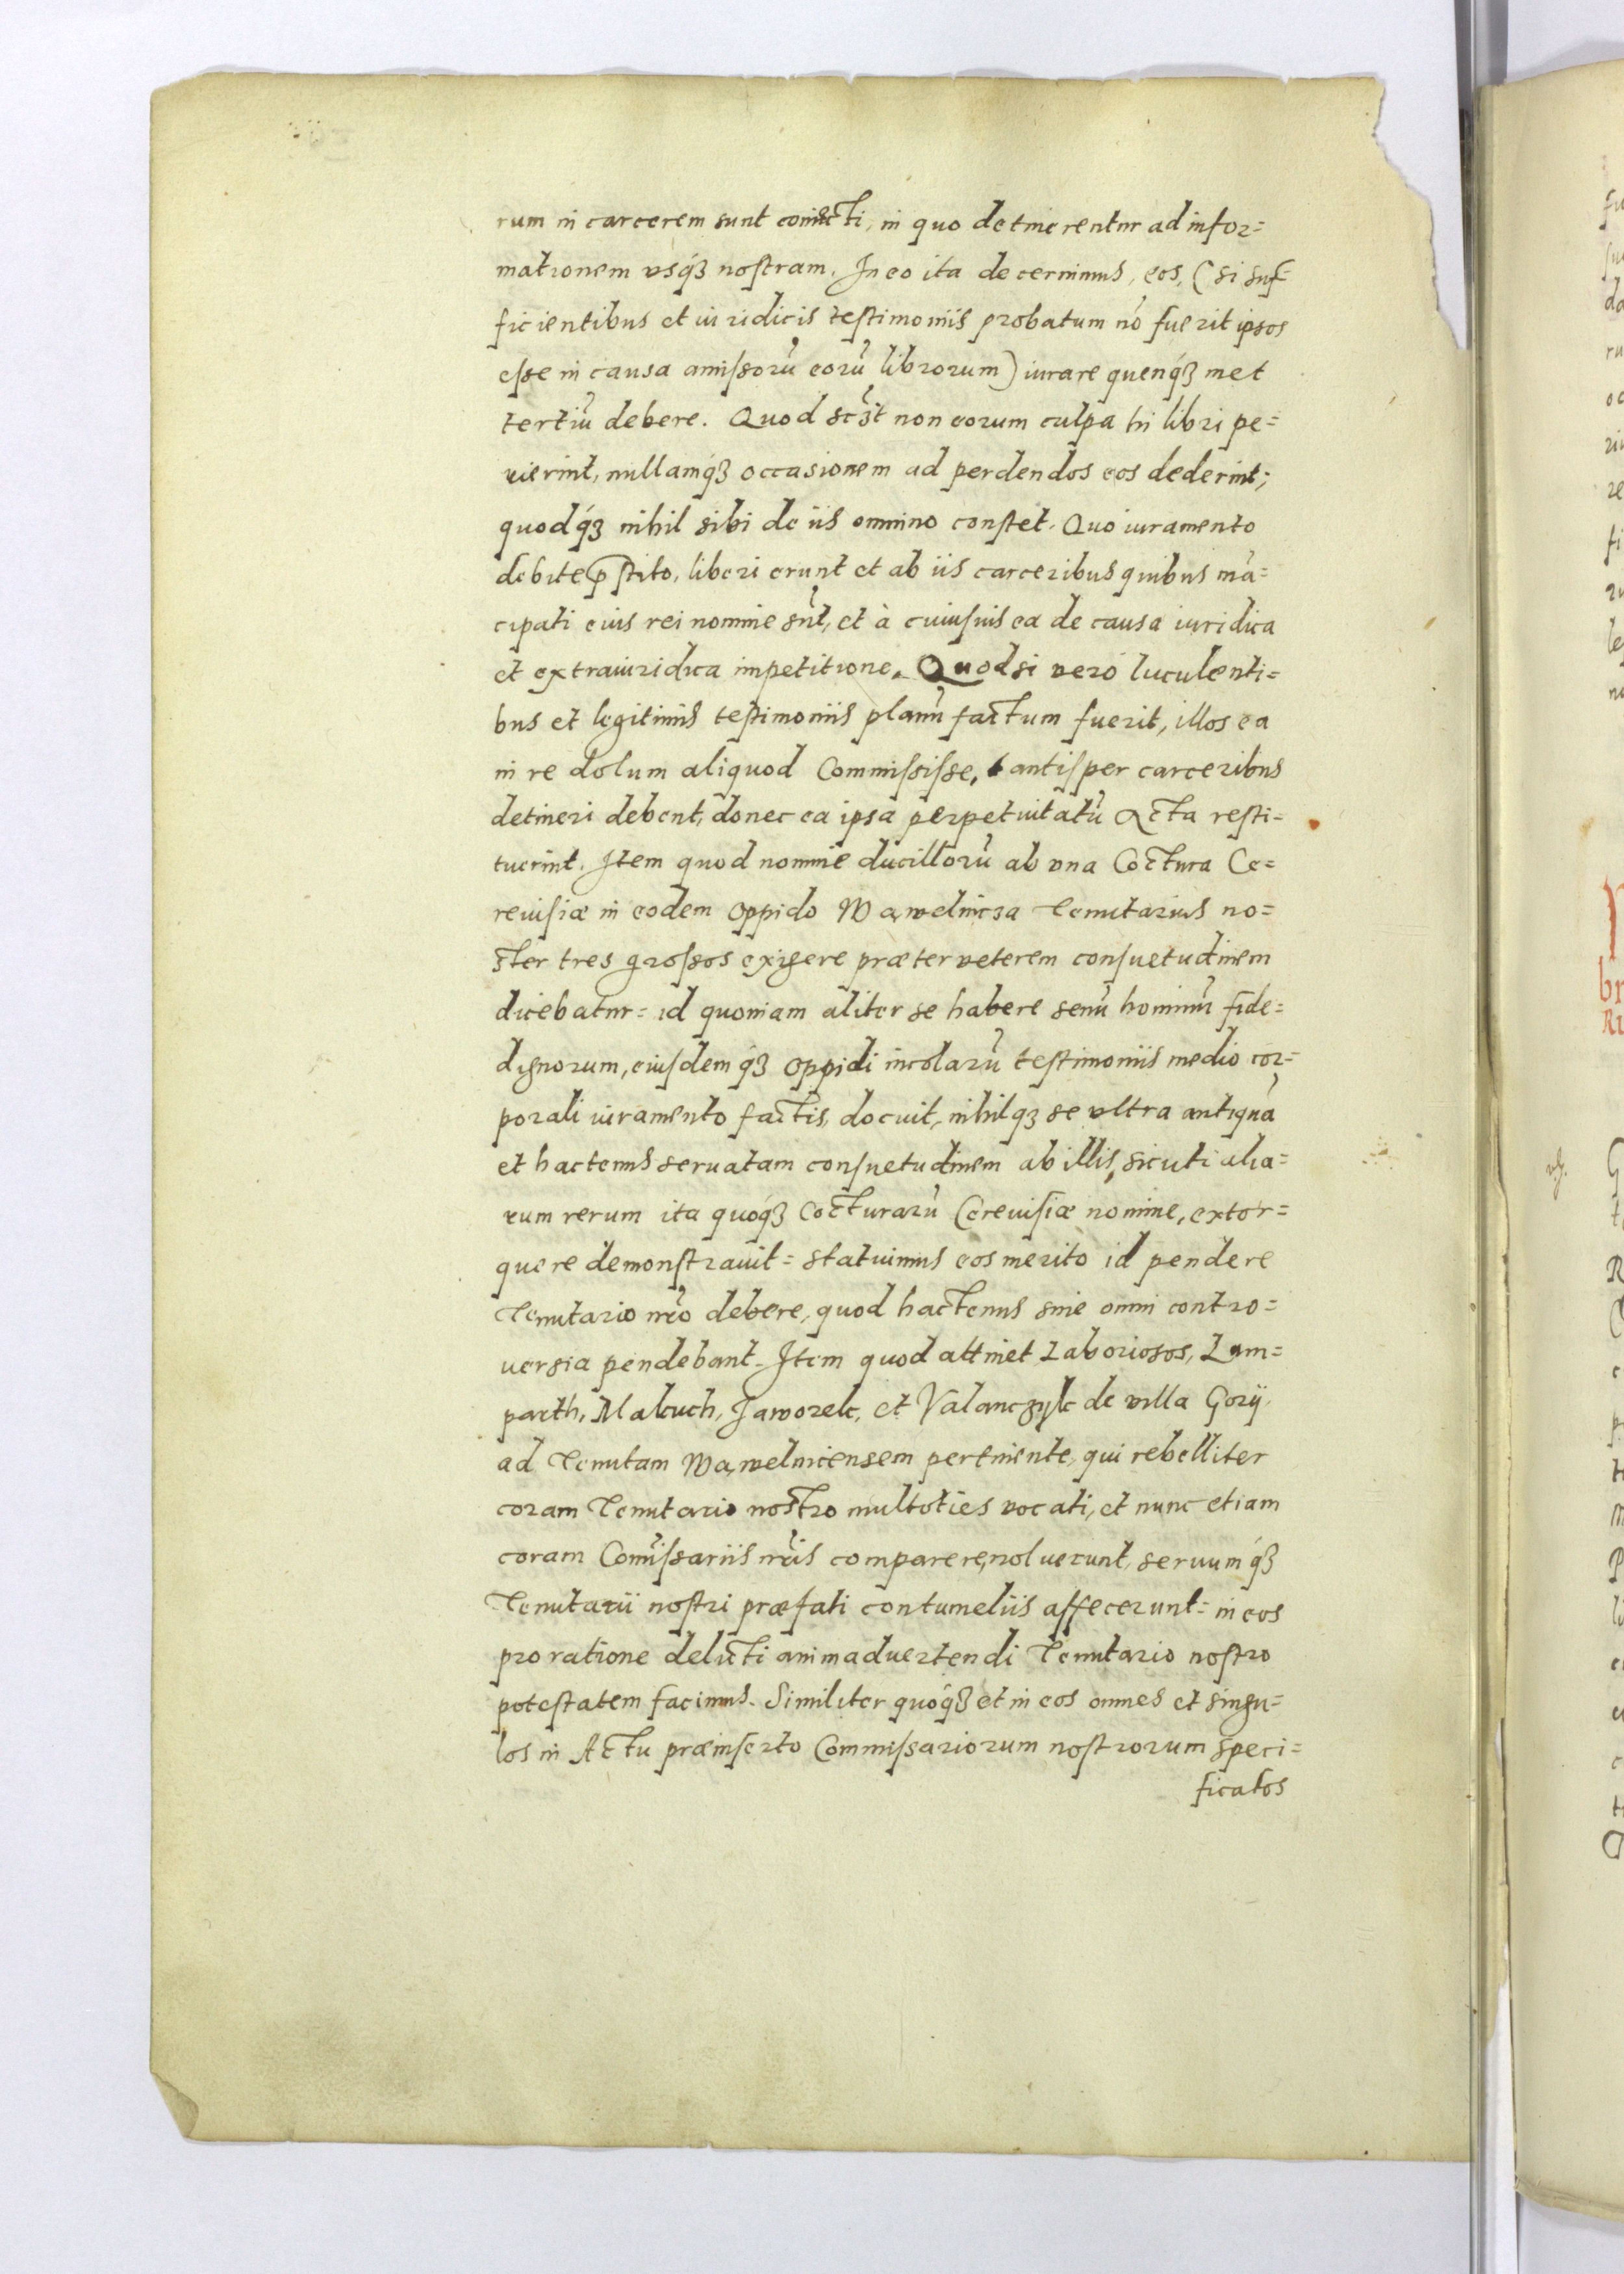 rum in carcerem sunt coniecti, in quo detinerentur ad infor=
mationem vsq́ꝫ nostram. In eo ita decernimus, eos, (si suf=
ficientibus et iuridicis testimoniis probatum nõ fuerit ipsos
esse in causa amissorũ eorũ librorum) iurare quenq́ꝫ met
tertiũ debere. Quod scꝫt non eorum culpa hi libri pe=
rierint, nullamq́ꝫ occasionem ad perdendos eos dederint;
quodq́ꝫ nihil sibi de iis omnino constet. Quo iuramento
debite p̃stito, liberi erunt et ab iis carceribus quibus mã=
cipati eius rei nomine sũt, et à cuiusuis ea de causa iuridica
et extraiuridica impetitione. Quodsi verò luculenti=
bus et legitimis testimoniis planũ factum fuerit, illos ea
in re dolum aliquod Commisisse, tantisper carceribus
detineri debent, donec ea ipsa perpetuitatũ Acta resti=
tuerint. Item quod nomine ducillorũ ab vna Coctura Ce=
reuisiæ in eodem oppido Wawelnicza Tenutarius no=
ster tres grossos exigere præter veterem consuetudinem
dicebatur= id quoniam aliter se habere senũ hominũ fide=
dignorum, eiusdemq́ꝫ oppidi incolarũ testimoniis medio cor=
porali iuramento factis, docuit, nihilqꝫ se vltra antiquã
et hactenus seruatam consuetudinem ab illis, sicuti alia=
rum rerum ita quoq́ꝫ Cocturarũ Cereuisiæ nomine, extor=
quere demonstrauit= statuimus eos merito id pendere
Tenutario nr̃o debere, quod hactenus sine omni contro=
uersia pendebant. Item quod attinet Laboriosos, Lam=
parth, Malcuch, Jaworek, et Valanczyk de villa Gory
ad Tenutam Wawelnicensem pertinente, qui rebelliter
coram Tenutario nostro multoties vocati, et nunc etiam
coram Com̃issariis nr̃is comparere, noluerunt, seruumq́ꝫ
Tenutarii nostri præfati contumeliis affecerunt= in eos
pro ratione delicti animaduertendi Tenutario nostro
potestatem facimus. Similiter quoq́ꝫ et in eos omnes et singu=
los in Actu præinserto Commissariorum nostrorum speci=
ficatos